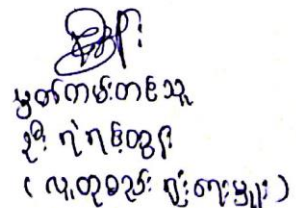 မှတ်တမ်းတင်သူ
ဦး ရဲရင့်ထွန်း
( လူထုစည်း ရုံးရေးမှူး )